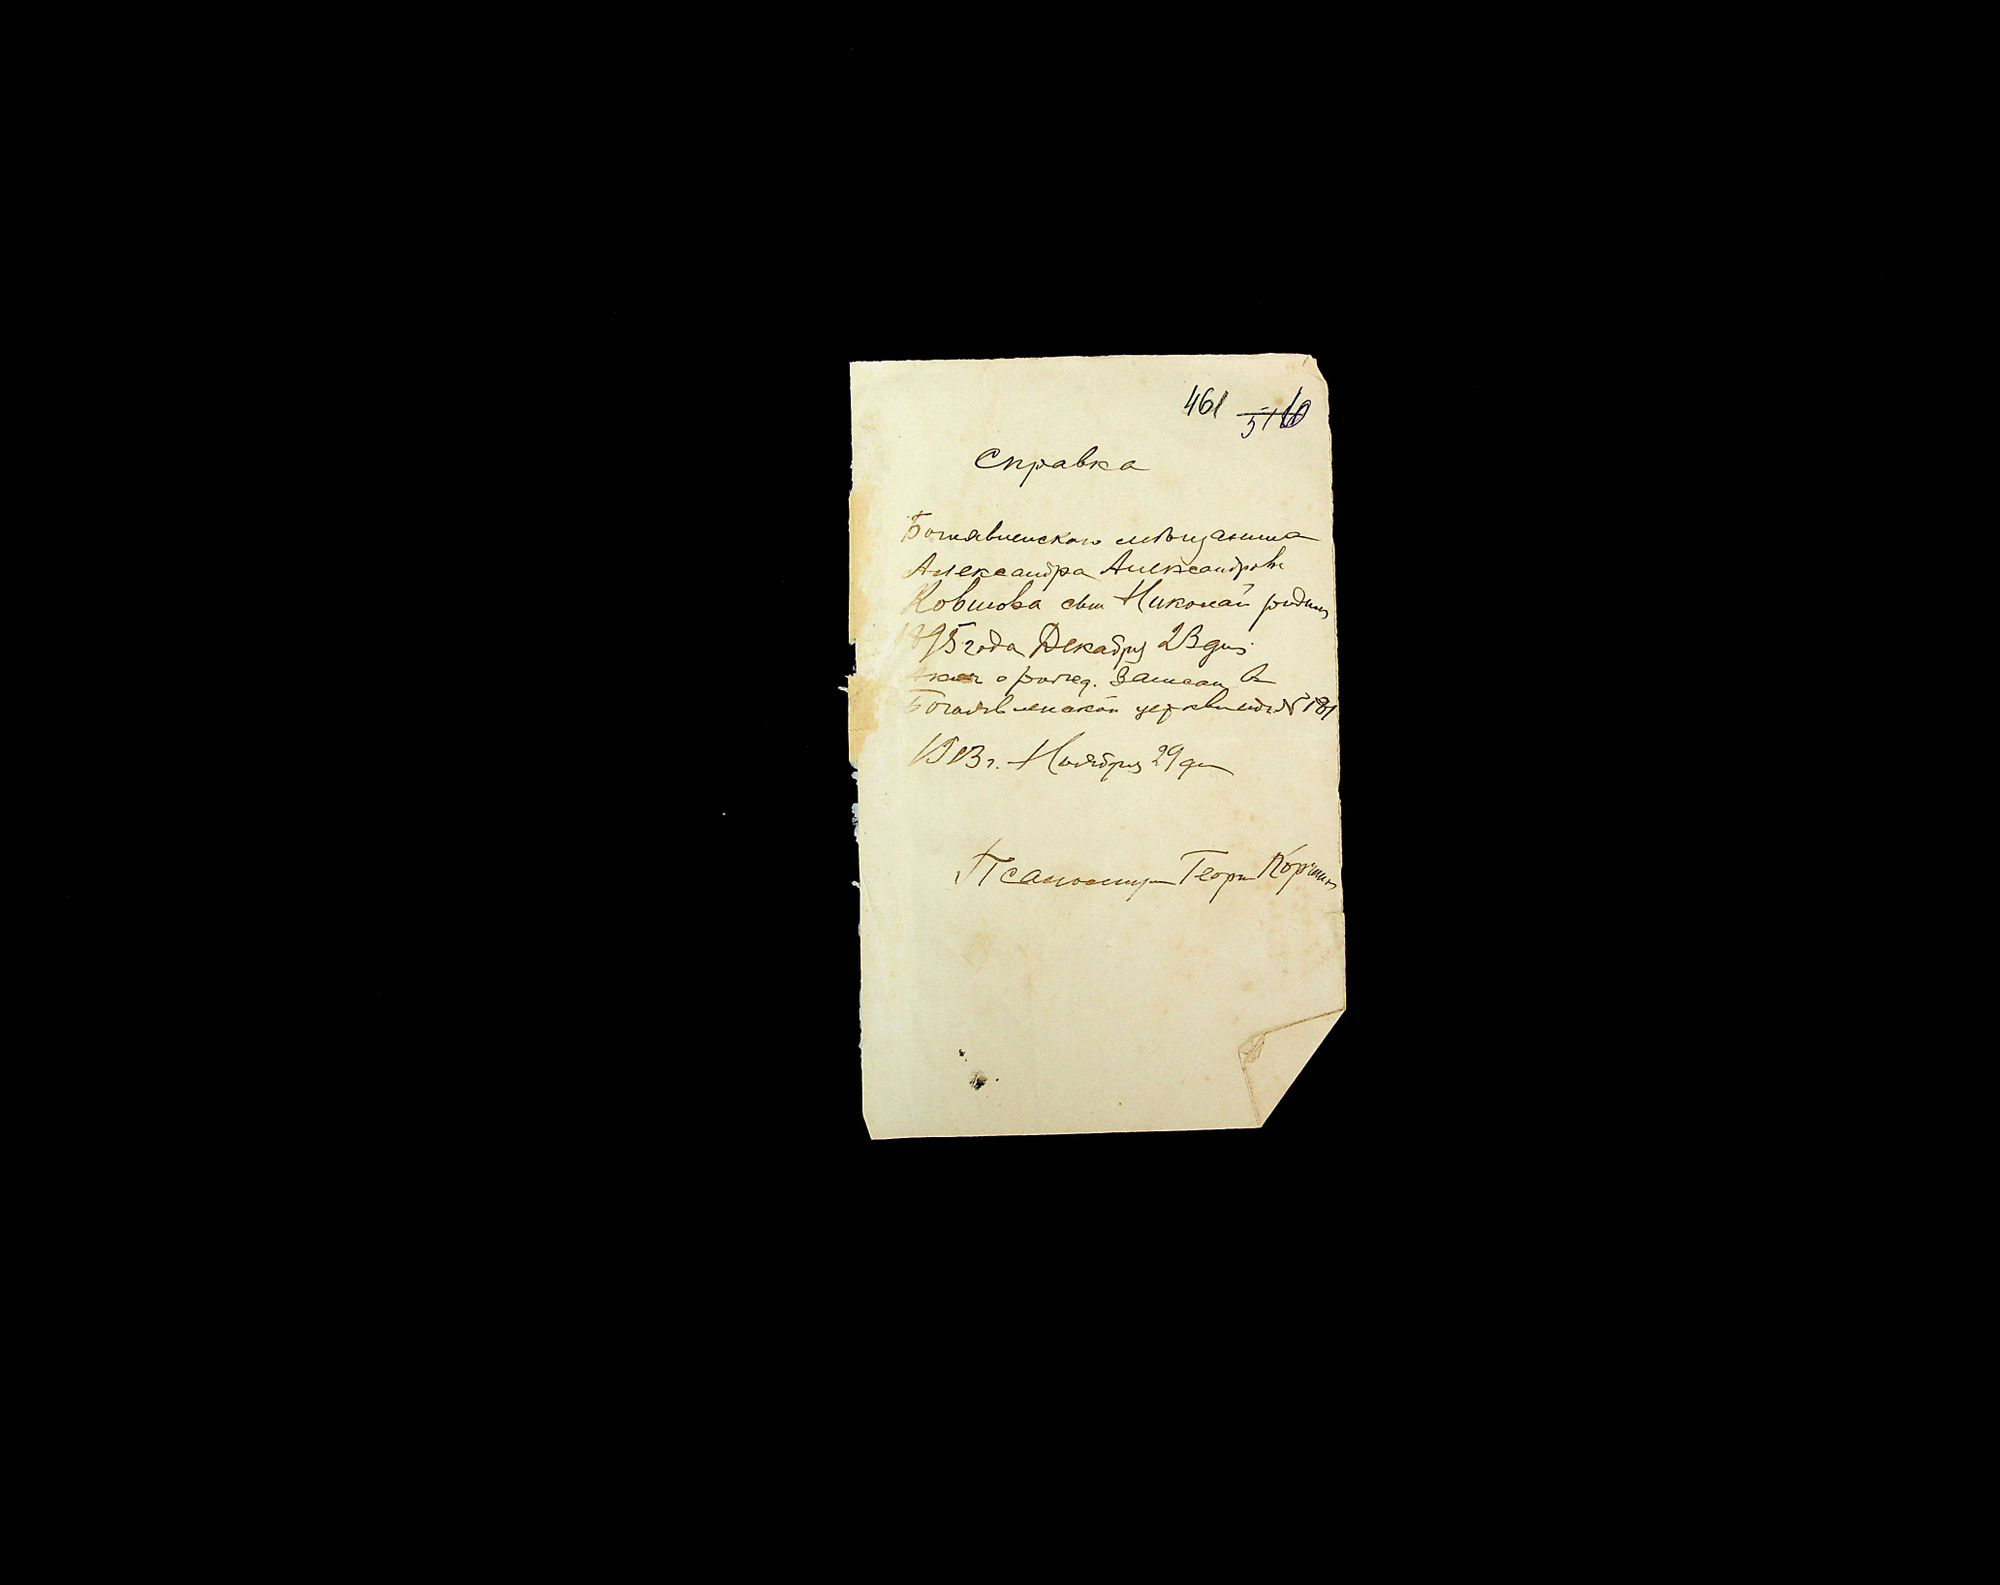 461 5110
Справка
Богоявленского мѣщанина
Александра Александрова
Ковшова сын Николай родил
1895 года Декабря 23 дня
Акт о рожд. Записан в
Богоявленской церкви под № 181
1913 г. Ноября 29 дня
Псаломщик Георг